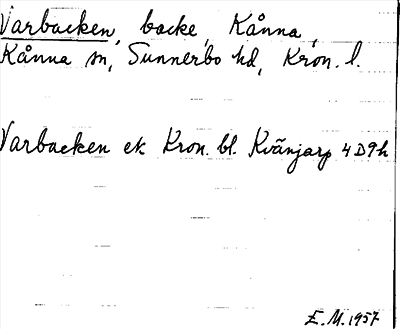 Varbacken, backe, Kånna,
Kånna sn, Sunnerbo hd, Kron. l.
Varbacken ek Kron. bl. Kvänjarp 4D9h
E.M.1957